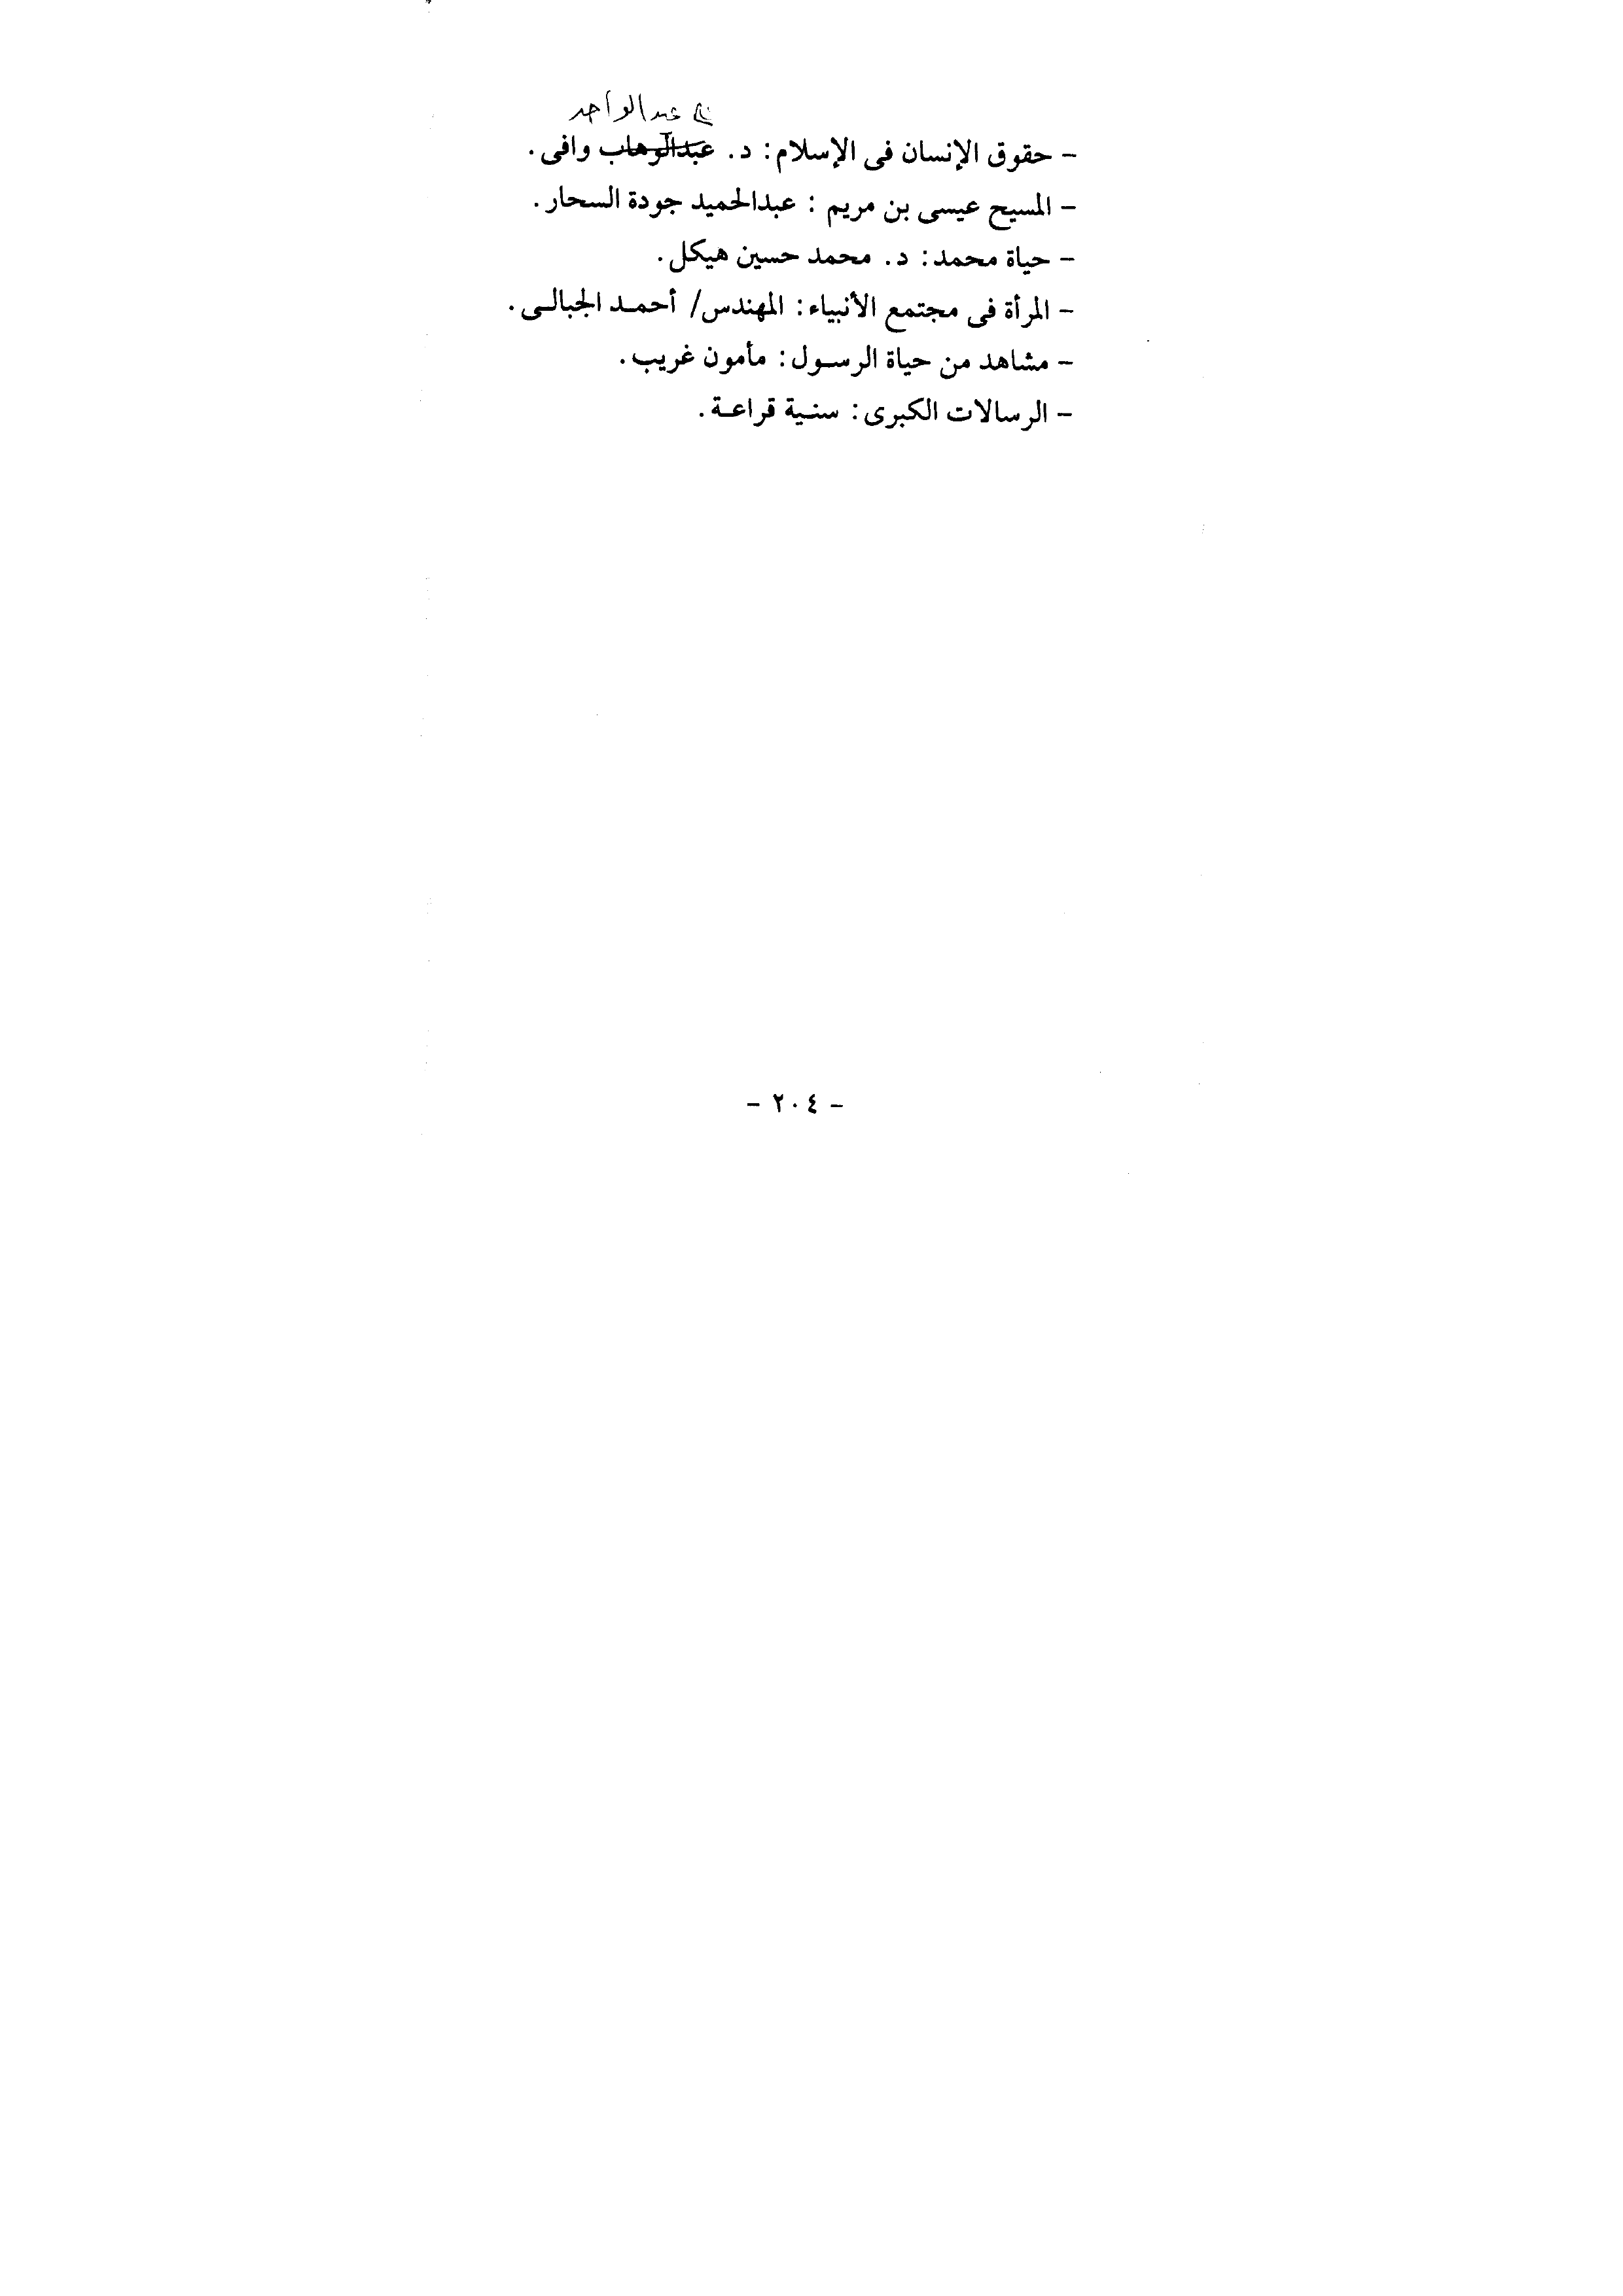 عبدالواحد
- حقوق الإنسان فى الإسلام: د. عبدالوهاب وافى.
- المسيح عيسى بن مريم : عبدالحميد جودة السحار.
- حياة محمد: د. محمد حسين هيكل.
- المرأة فى مجتمع الأنبياء: المهندس/ أحمد الجبالى.
- مشاهد من حياة الرسول: مأمون غريب.
- الرسالات الكبرى: سنية قراعة.
- ٢٠٤ -